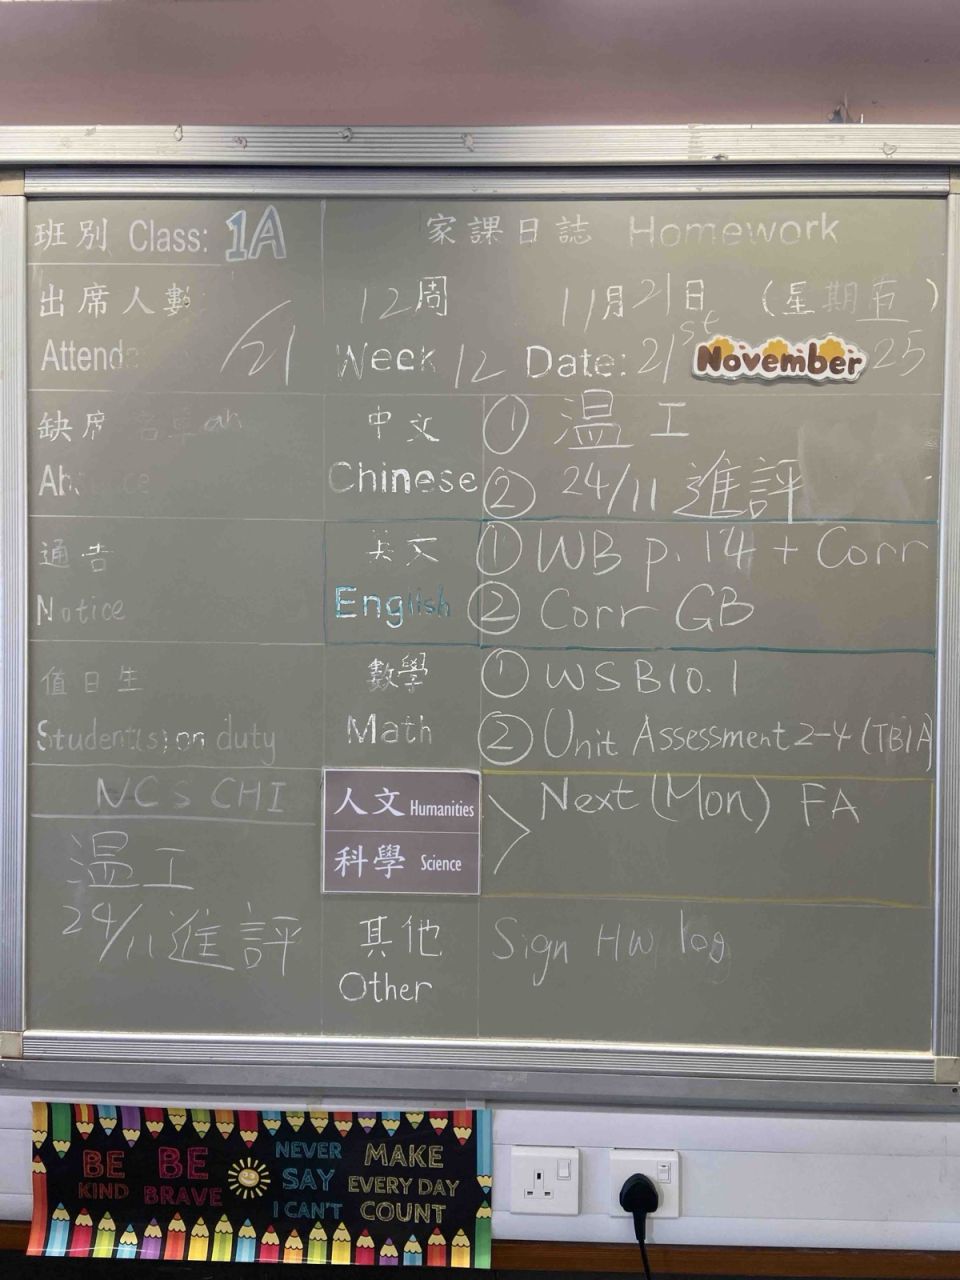 班別 Class: 1A
家課日誌 Homework
出席人數
12周 11月21日 (星期 )
Attend /21
Week 12 Date: 21st November 25
缺席
中文 ① 温工
Chinese ② 24/11 進評
通告
英文 ① WB p. 14 + Corr
Notice
English ② Corr GB
值日生
數學 ① WSB10.1
Student(s) on duty
Math ② Unit Assessment 2-4 (TB1A)
NCS CHI
温工
24/11 進評
人文 Humanities
科學 Science
> Next (Mon) FA
其他 Sign HW log
Other
BE KIND
BE BRAVE
NEVER SAY I CAN'T
MAKE EVERY DAY COUNT